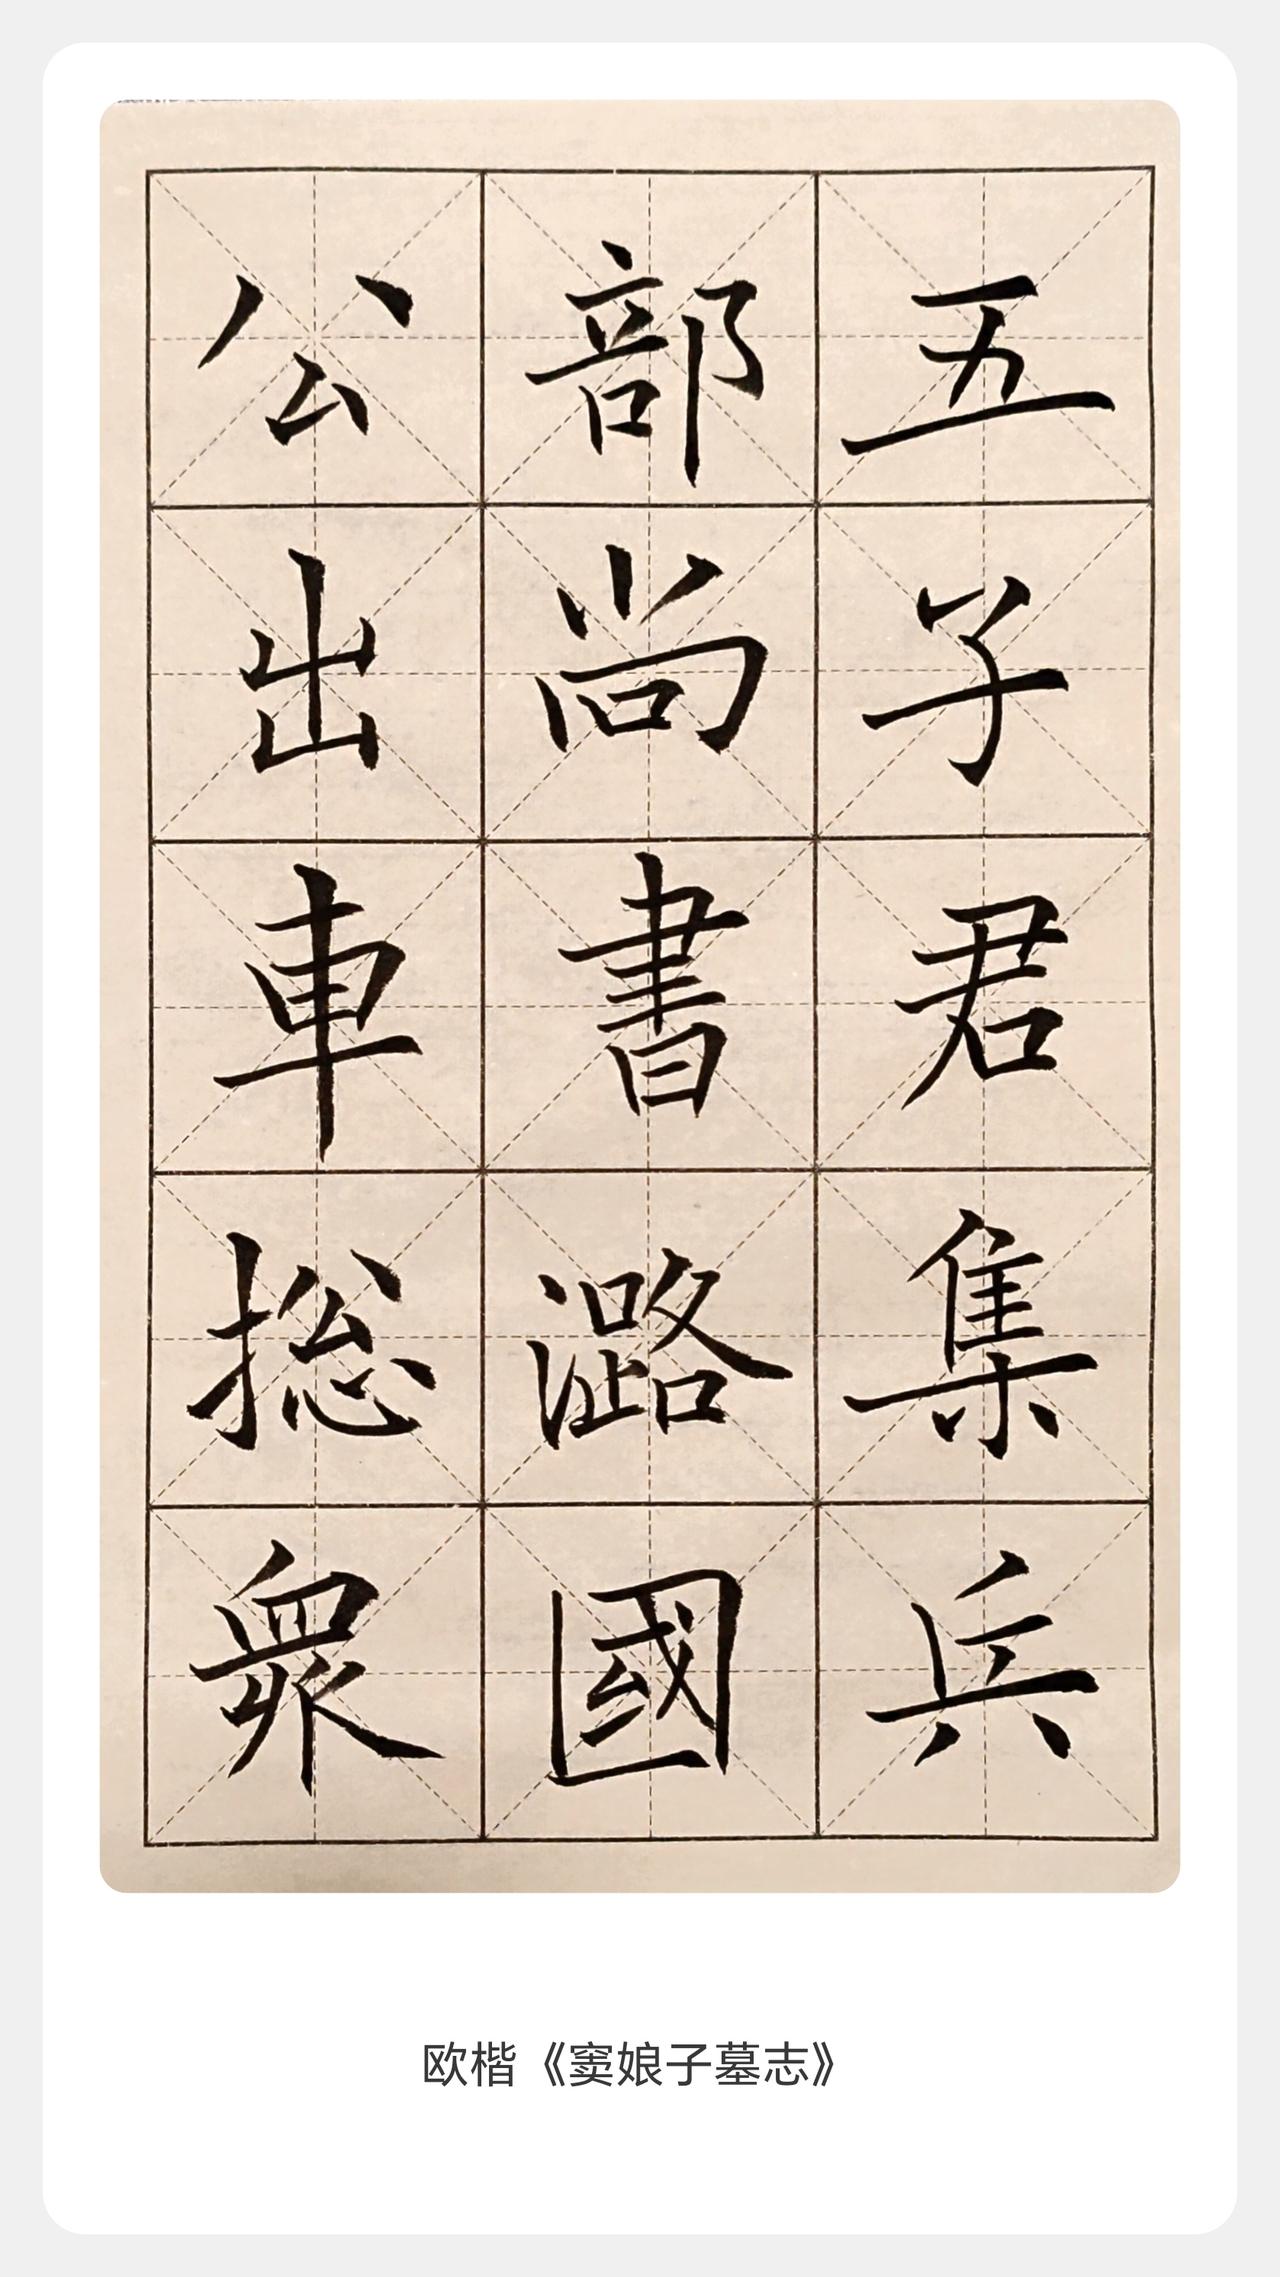 五子君集兵
部尚書潞國
公出車捴衆
欧楷《窦娘子墓志》